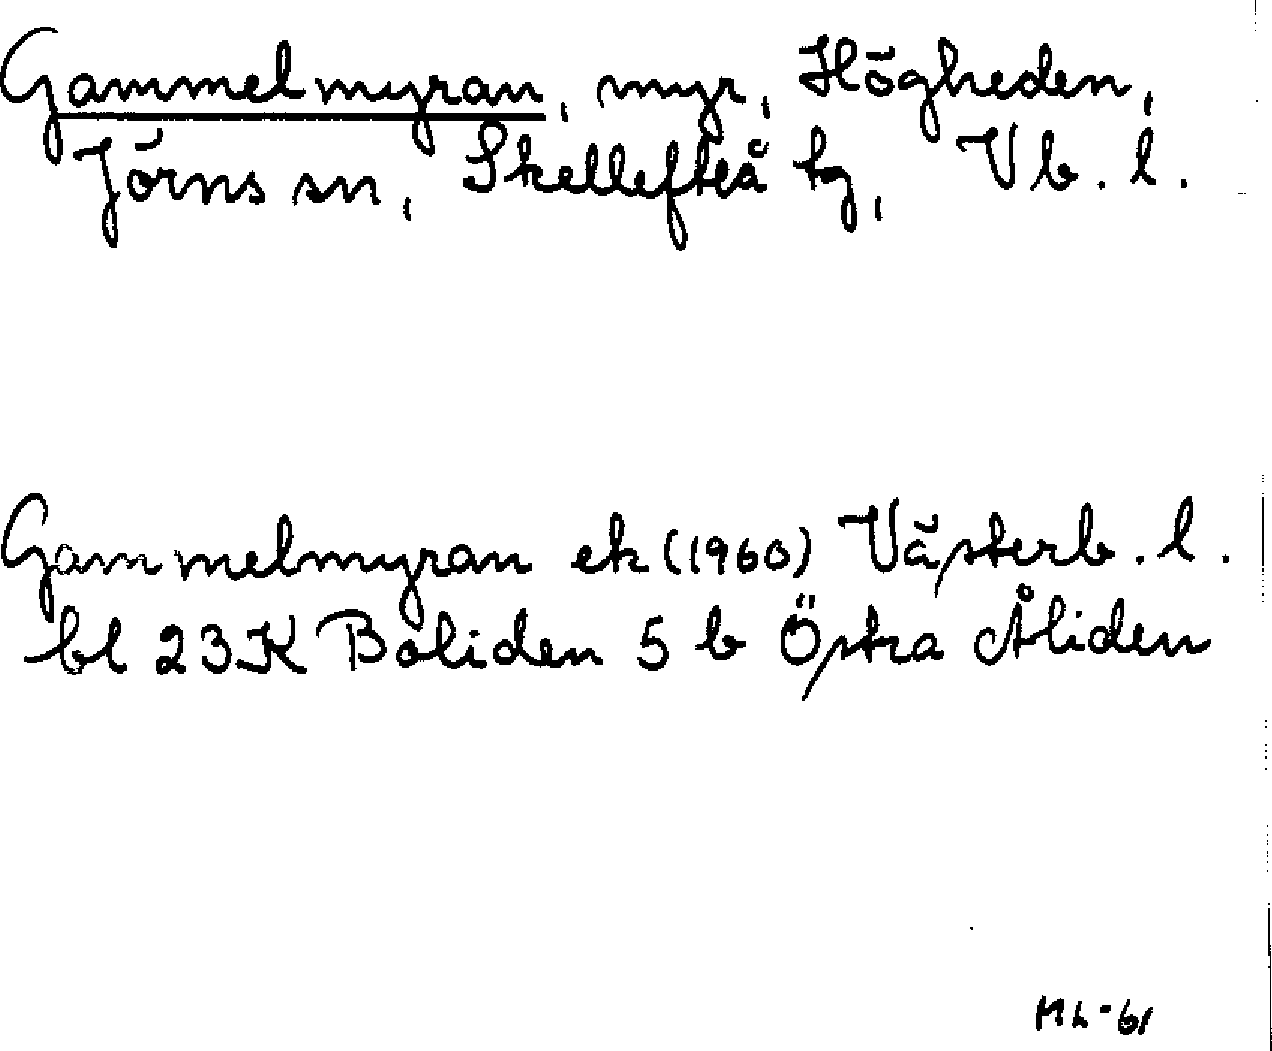 Gammelmyran, myr, Högheden,
Jörns sn, Skellefteå tg, Vb. l.
Gammelmyran ek (1960) Västerb. l.
bl 23K Boliden 5 b Östra Åliden
ML-61